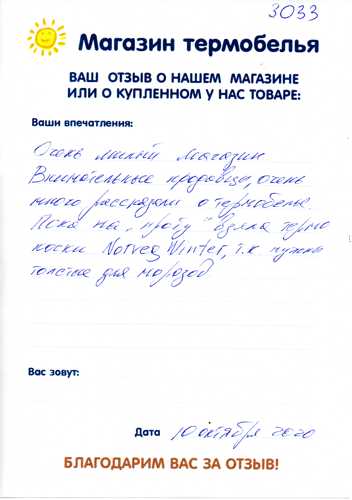 3033
Магазин термобелья
ВАШ ОТЗЫВ О НАШЕМ МАГАЗИНЕ
ИЛИ О КУПЛЕННОМ У НАС ТОВАРЕ:
Ваши впечатления:
Очень милый магазин
Внимательные продавцы, очень
много рассказали о термобелье.
Пока на "пробу" взяла термо
носки Norveg Winter, т.к нужны
толстые для морозов
Вас зовут:
Дата 10 октября 2020
БЛАГОДАРИМ ВАС ЗА ОТЗЫВ!